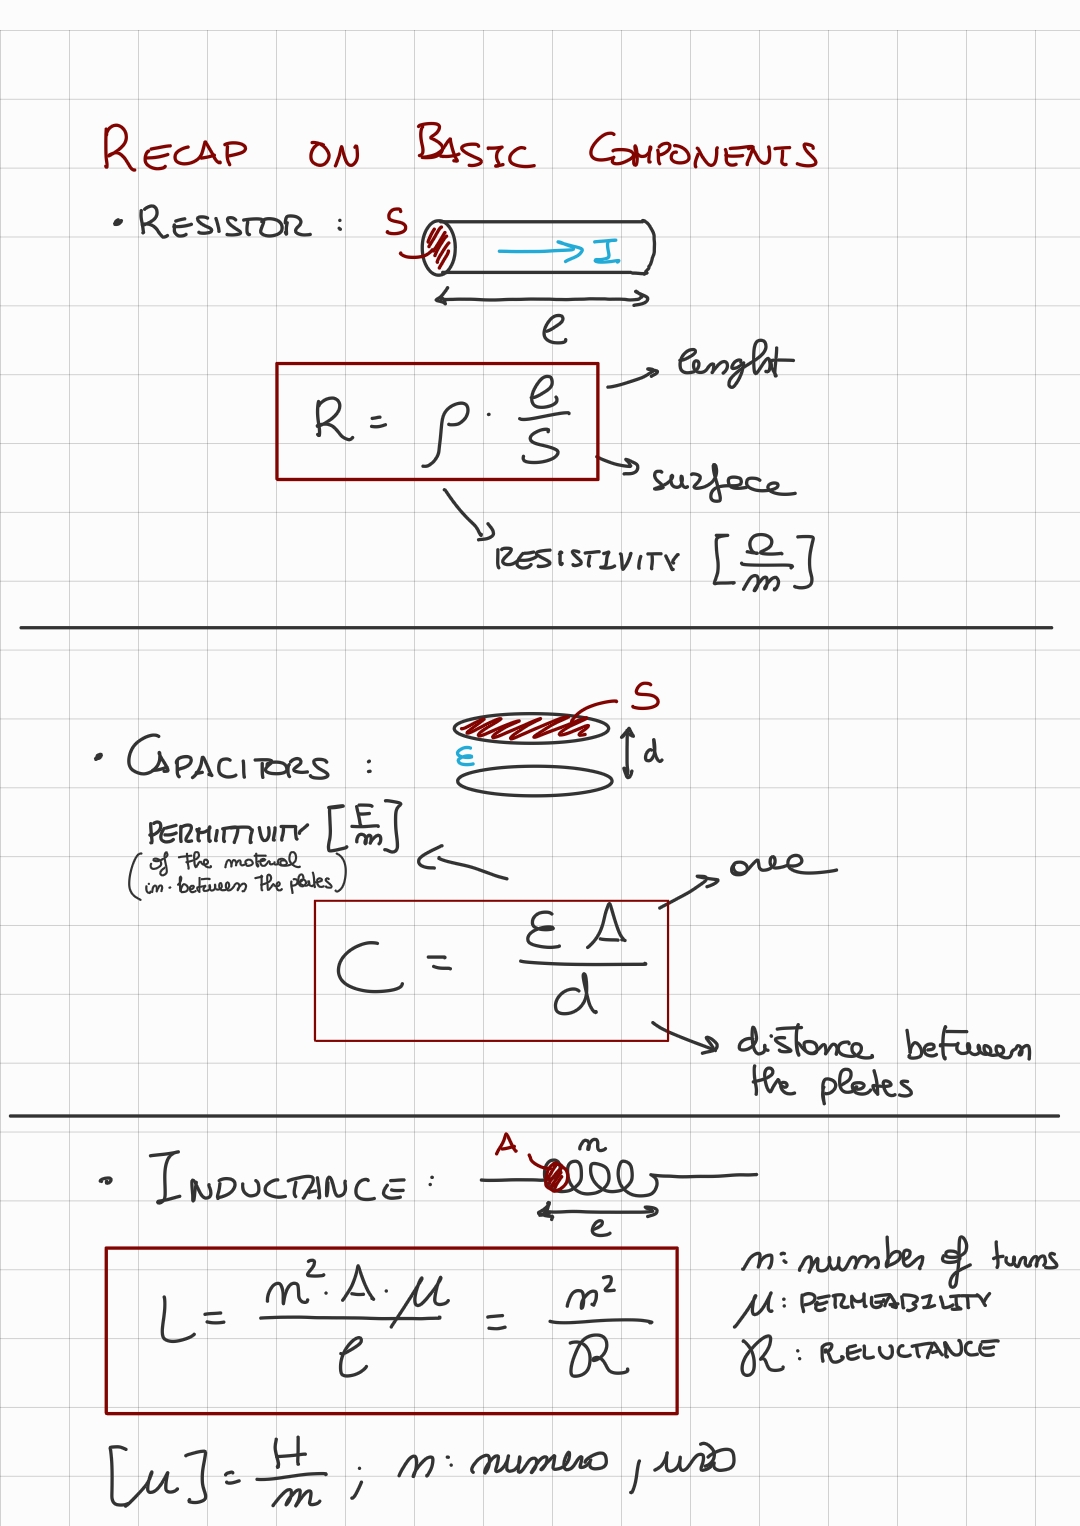 RECAP ON BASIC COMPONENTS
• RESISTOR : S
I
l
R = ρ · l/S
lenght
surface
RESISTIVITY [Ω/m]
S
ε d
• CAPACITORS :
PERMITTIVITY [F/m]
(of the material
in-between the plates)
area
C = ε A / d
distance between
the plates
• INDUCTANCE : A n
l
L = n² · A · μ / l = n² / ℛ
n: number of turns
μ: PERMEABILITY
ℛ: RELUCTANCE
[μ] = H/m ; n: numero,